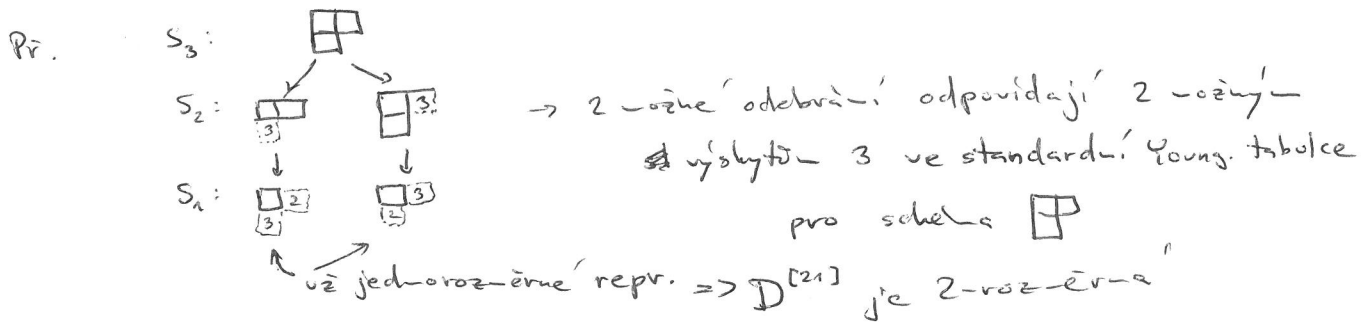 Př. S₃:
S₂: 3 3 → 2 možné odebrání odpovídají 2 možným
výskytům 3 ve standardní Young. tabulce
S₁: 2 3 3 2
pro schéma
už jednorozměrné repr. => D^[21] je 2-rozměrná